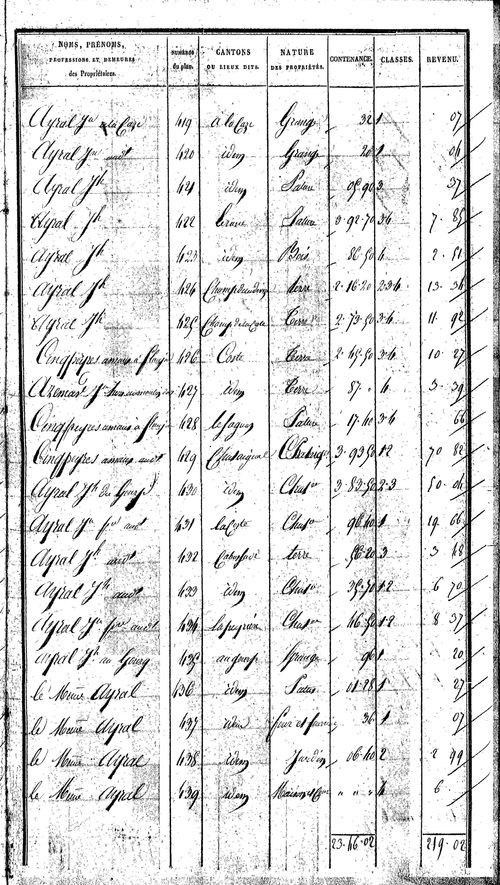 NOMS, PRÉNOMS, PROFESSIONS ET DEMEURES des Propriétaires. NUMÉROS du plan. CANTONS OU LIEUX DITS. NATURE DES PROPRIÉTÉS. CONTENANCE. CLASSES. REVENU.
Ayral Jn a la Caze 419 a la Caze Grange 32 1 07
Ayral Jn audt 420 idem Grange 20 1 04
Ayral Jh 421 idem Pature 05.90 3 37
Ayral Jh 422 Pature 3.92.70 3.4 7.85
Ayral Jh 423 idem Bois 86.50 4 2.51
Ayral Jh 424 terre 2.16.20 2.3.4 13.34
Ayral Jh 425 Champ de la Coste Terre 2.79.50 3.4 11.92
Cinqpeyres amans a 426 Coste Terre 2.45.50 3.4 10.27
Azemar 427 idem Terre 87 " 4 3.39
Cinqpeyres amans a 428 Pature 17.40 3.4 66
Cinqpeyres amans audt 429 3.93.50 1.2 70.82
Ayral Jh du Gourp 430 idem Chatre 3.82.50 2.3 50.04
Ayral Jn audt 431 la Coste Chatre 98.40 1 19.66
Ayral Jh audt 432 terre 56.20 3 3.48
Ayral Jh audt 433 idem Chatre 35.70 1.2 6.70
Ayral Jn audt 434 Chatre 46.50 1.2 8.37
Ayral Jh au Gourg 435 au gourp Grange 90 1 20
le Meme Ayral 436 idem Patus 01.28 1 27
le Meme Ayral 437 idem 36 1 07
le Meme Ayral 438 idem Jardin 06.40 2 2.99
le Meme Ayral 439 idem Maison " " " 4 6
23.46.02 219.02